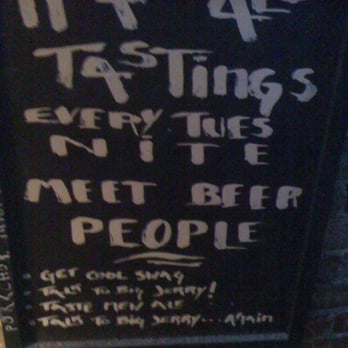 TASTINGS
EVERY TUES
NITE
MEET BEER
PEOPLE
GET COOL SWAG
TALK TO BIG JERRY!
TASTE NEW ALE
TALK TO BIG JERRY... AGAIN